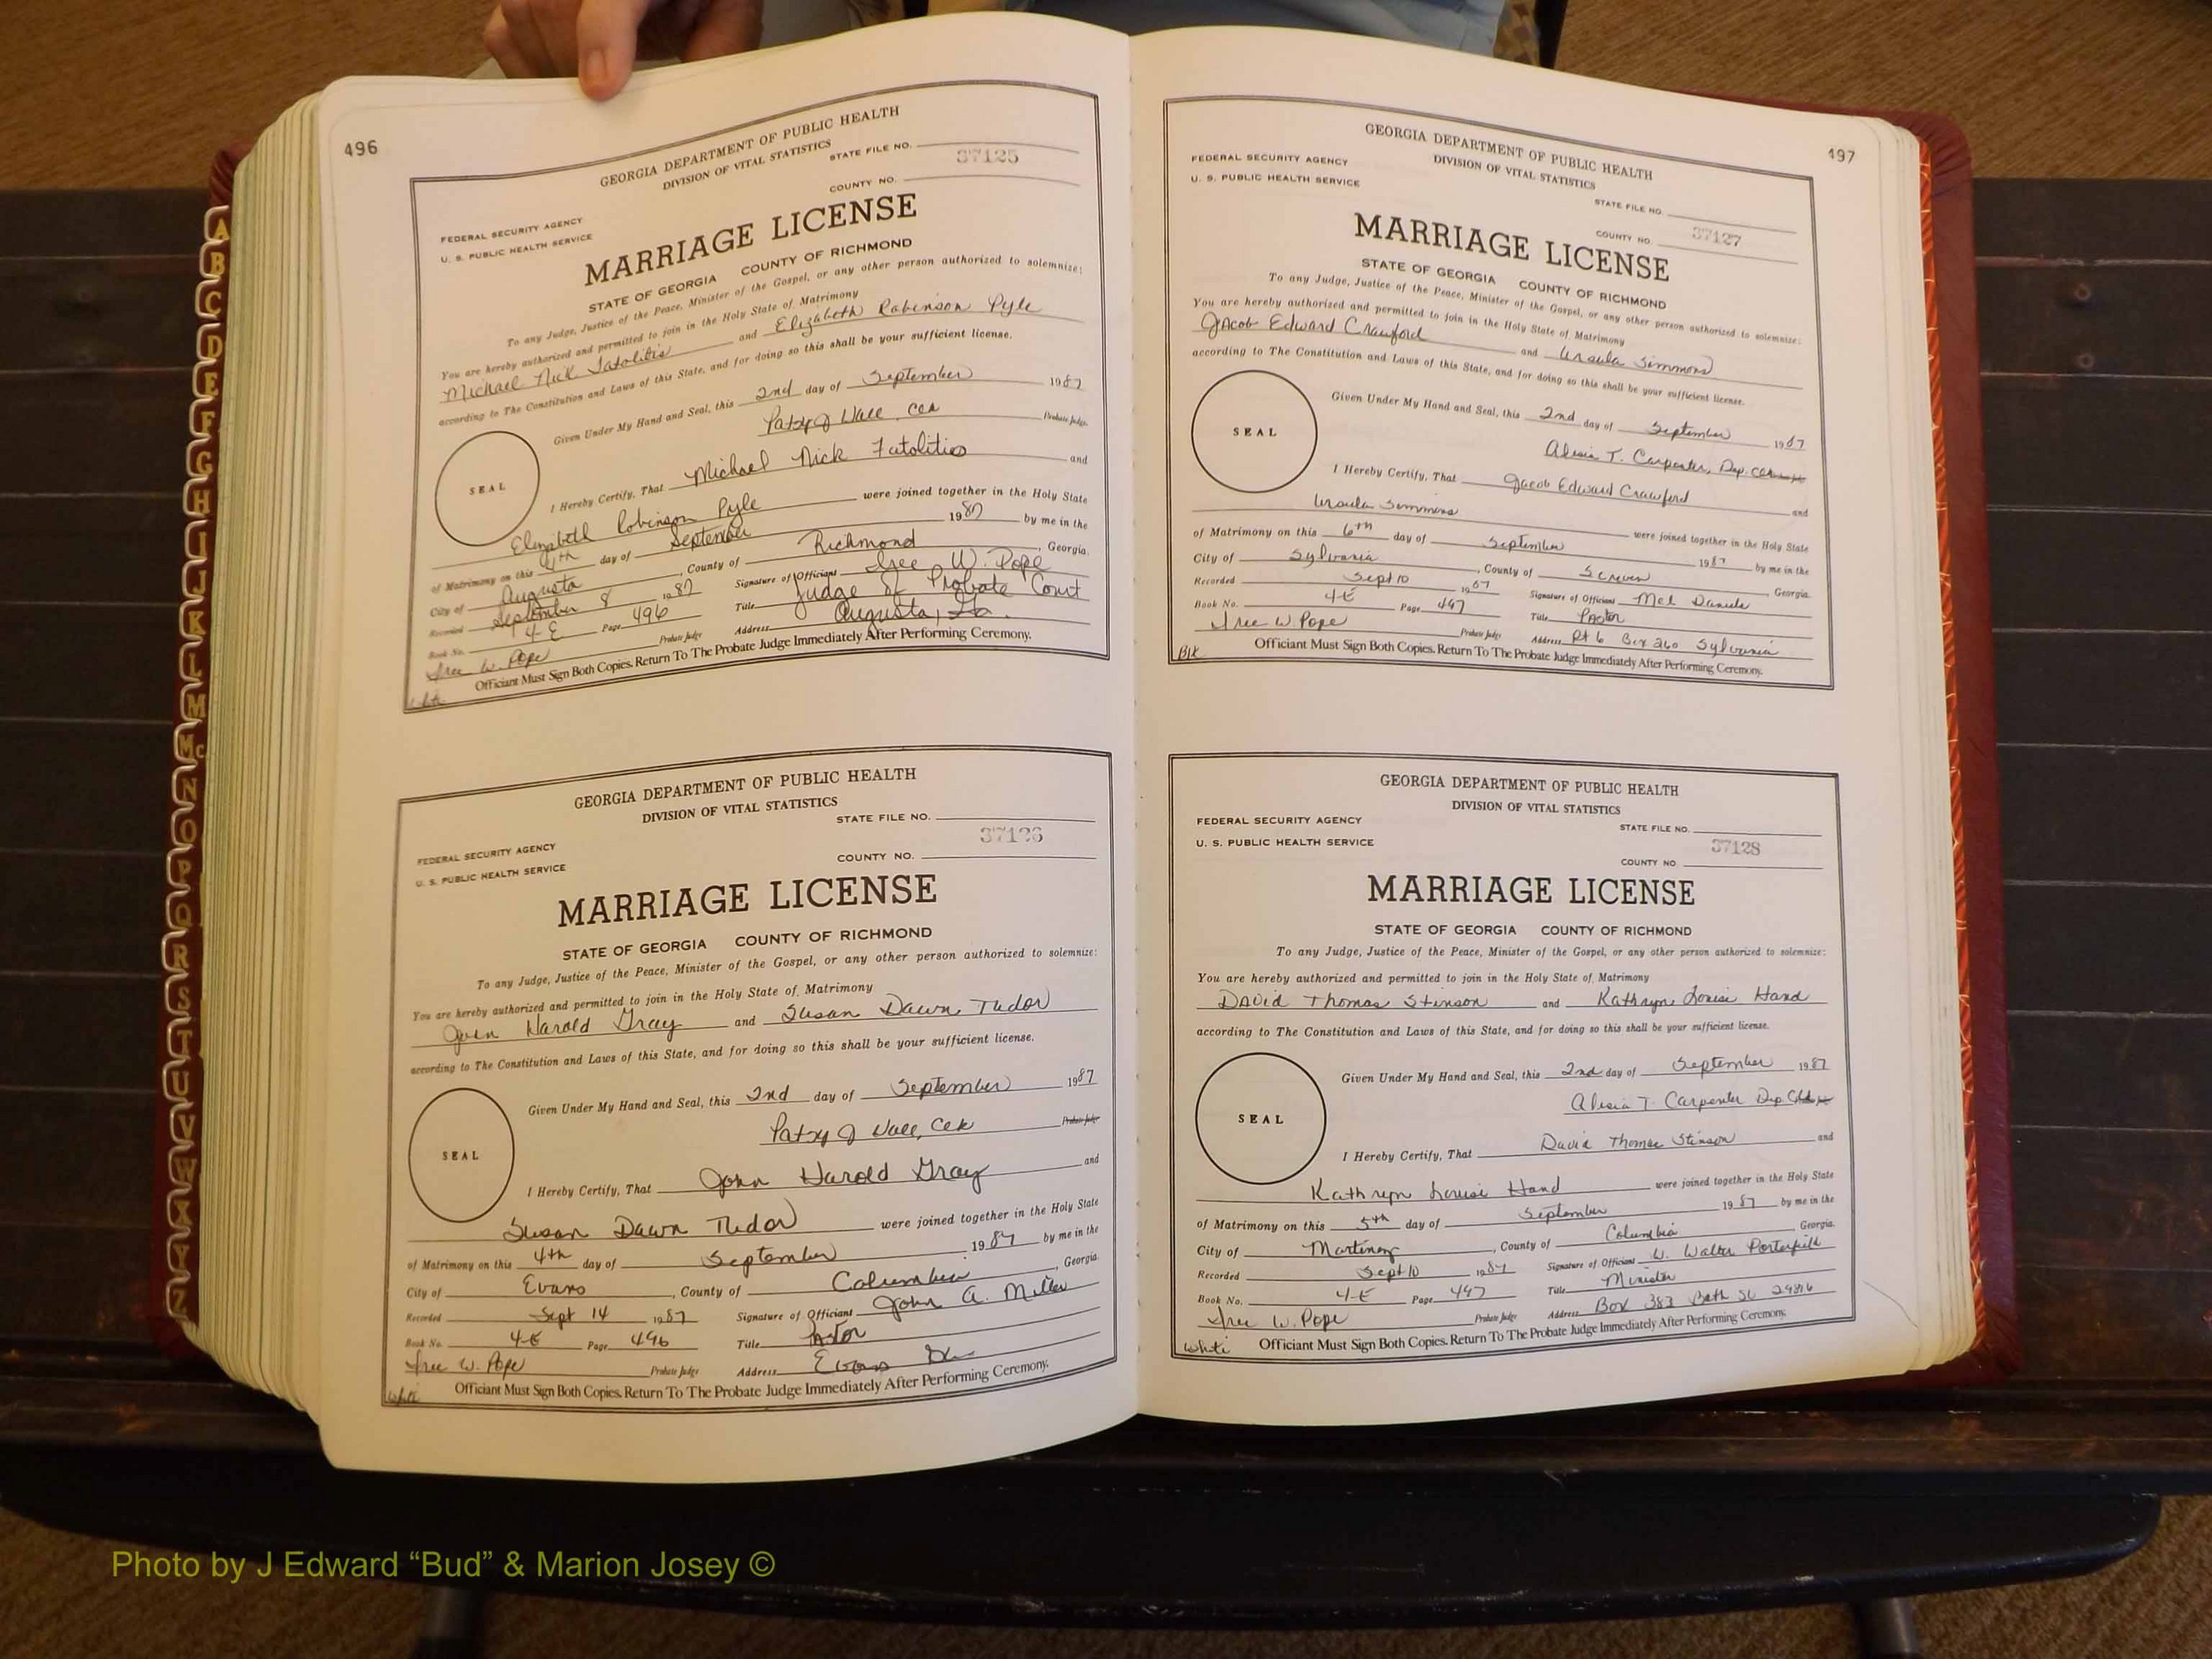 496
GEORGIA DEPARTMENT OF PUBLIC HEALTH
DIVISION OF VITAL STATISTICS
STATE FILE NO.
37125
COUNTY NO.
FEDERAL SECURITY AGENCY
U. S. PUBLIC HEALTH SERVICE
MARRIAGE LICENSE
STATE OF GEORGIA COUNTY OF RICHMOND
To any Judge, Justice of the Peace, Minister of the Gospel, or any other person authorized to solemnize:
You are hereby authorized and permitted to join in the Holy State of Matrimony
Michael Nick and Elizabeth Robinson Pyle
according to The Constitution and Laws of this State, and for doing so this shall be your sufficient license.
Given Under My Hand and Seal, this 2nd day of September 1987
Patsy J Wall, Clk Probate Judge
SEAL
I Hereby Certify, That Michael Nick and
Elizabeth Robinson Pyle were joined together in the Holy State
of Matrimony on this day of September 1987 by me in the
City of Augusta, County of Richmond, Georgia.
Recorded September 8 1987 Signature of Officiant Isee W. Pope
Book No. 4-E Page 496 Title Judge of Probate Court
Isee W. Pope Probate Judge Address Augusta, Ga.
White Officiant Must Sign Both Copies. Return To The Probate Judge Immediately After Performing Ceremony.
GEORGIA DEPARTMENT OF PUBLIC HEALTH
DIVISION OF VITAL STATISTICS
STATE FILE NO.
37126
COUNTY NO.
FEDERAL SECURITY AGENCY
U. S. PUBLIC HEALTH SERVICE
MARRIAGE LICENSE
STATE OF GEORGIA COUNTY OF RICHMOND
To any Judge, Justice of the Peace, Minister of the Gospel, or any other person authorized to solemnize:
You are hereby authorized and permitted to join in the Holy State of Matrimony
John Harold Gray and Susan Dawn Tudor
according to The Constitution and Laws of this State, and for doing so this shall be your sufficient license.
Given Under My Hand and Seal, this 2nd day of September 1987
Patsy J Wall, Clk Probate Judge
SEAL
I Hereby Certify, That John Harold Gray and
Susan Dawn Tudor were joined together in the Holy State
of Matrimony on this 4th day of September 1987 by me in the
City of Evans, County of Columbia, Georgia.
Recorded Sept 14 1987 Signature of Officiant John A. Miller
Book No. 4-E Page 496 Title Pastor
Isee W. Pope Probate Judge Address Evans Ga
White Officiant Must Sign Both Copies. Return To The Probate Judge Immediately After Performing Ceremony.
497
GEORGIA DEPARTMENT OF PUBLIC HEALTH
DIVISION OF VITAL STATISTICS
FEDERAL SECURITY AGENCY
U. S. PUBLIC HEALTH SERVICE
STATE FILE NO.
37127
COUNTY NO.
MARRIAGE LICENSE
STATE OF GEORGIA COUNTY OF RICHMOND
To any Judge, Justice of the Peace, Minister of the Gospel, or any other person authorized to solemnize:
You are hereby authorized and permitted to join in the Holy State of Matrimony
Jacob Edward Crawford and Ursula Simmons
according to The Constitution and Laws of this State, and for doing so this shall be your sufficient license.
Given Under My Hand and Seal, this 2nd day of September 1987
Alisia T. Carpenter, Dep. Clk
SEAL
I Hereby Certify, That Jacob Edward Crawford and
Ursula Simmons were joined together in the Holy State
of Matrimony on this 6th day of September 1987 by me in the
City of Sylvania, County of Screven Georgia.
Recorded Sept 10 1987 Signature of Officiant Mel Daniels
Book No. 4-E Page 497 Title Pastor
Isee W Pope Probate Judge Address Rt 6 Box 260 Sylvania
Blk Officiant Must Sign Both Copies. Return To The Probate Judge Immediately After Performing Ceremony.
GEORGIA DEPARTMENT OF PUBLIC HEALTH
DIVISION OF VITAL STATISTICS
FEDERAL SECURITY AGENCY
STATE FILE NO.
U. S. PUBLIC HEALTH SERVICE
37128
COUNTY NO.
MARRIAGE LICENSE
STATE OF GEORGIA COUNTY OF RICHMOND
To any Judge, Justice of the Peace, Minister of the Gospel, or any other person authorized to solemnize:
You are hereby authorized and permitted to join in the Holy State of Matrimony
David Thomas Stinson and Kathryn Louise Hand
according to The Constitution and Laws of this State, and for doing so this shall be your sufficient license.
Given Under My Hand and Seal, this 2nd day of September 1987
Alisia T Carpenter Dep Clk
SEAL
I Hereby Certify, That David Thomas Stinson and
Kathryn Louise Hand were joined together in the Holy State
of Matrimony on this 5th day of September 1987 by me in the
City of Martinez, County of Columbia Georgia.
Recorded Sept 10 1987 Signature of Officiant W. Walter Porterfield
Book No. 4-E Page 497 Title Minister
Isee W. Pope Probate Judge Address Box 383 Bath SC 29816
White Officiant Must Sign Both Copies. Return To The Probate Judge Immediately After Performing Ceremony.
A
B
C
D
E
F
G
H
I
J
K
L
M
Mc
N
O
P
Q
R
S
T
U
V
W
X
Y
Z
Photo by J Edward “Bud” & Marion Josey ©